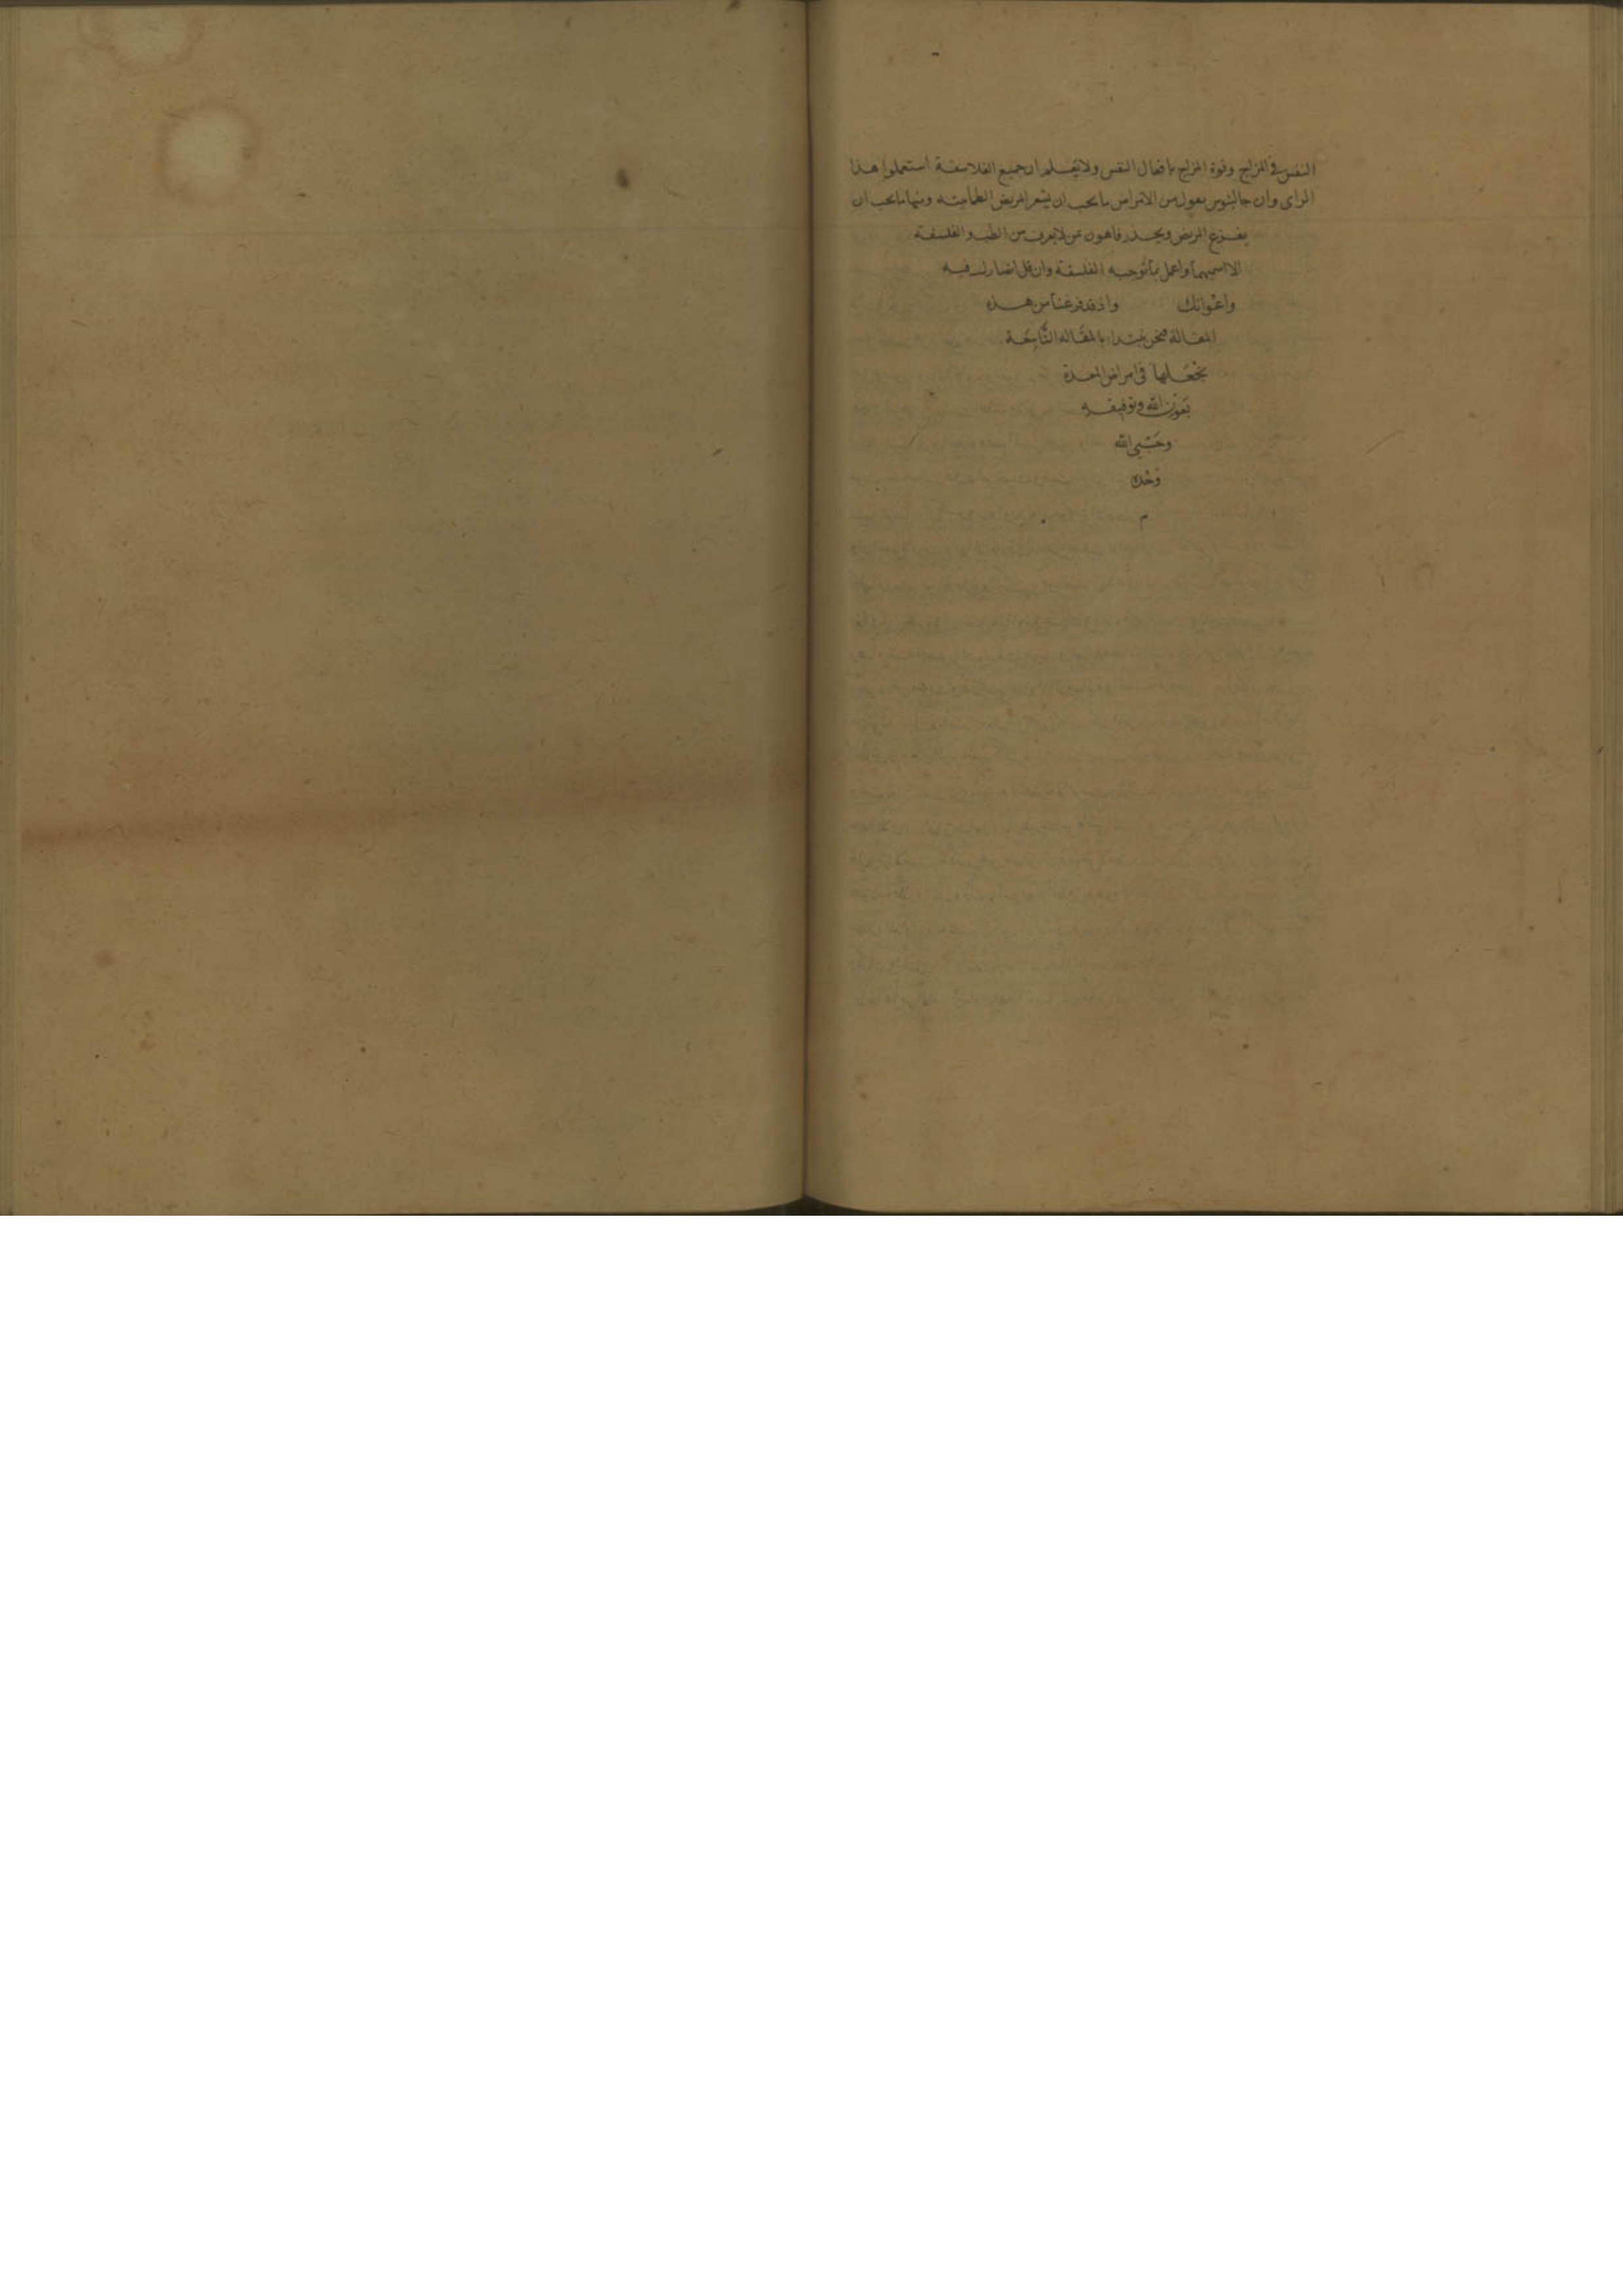 النفس في المزاج وقوة المزاج بافعال النفس ولا يعلم ان جميع الفلاسفة استعملوا هذا
الراى وان جالينوس يقول من الامراض ما يجب ان يشعر المريض الطمانينه ومنها ما يجب ان
يفزع المريض ويحذر فاهون بمن لا يعرف من الطب والفلسفة
الا اسميهما واعمل بما توجبه الفلسفة وان قل انصارك فيه
واعوانك واذ قد فرغنا من هذه
المقالة فنحن نبتداء بالمقاله التاسعة
نجعلها في امراض المعدة
بعون الله وتوفيقه
وحسبي الله
وحده
م